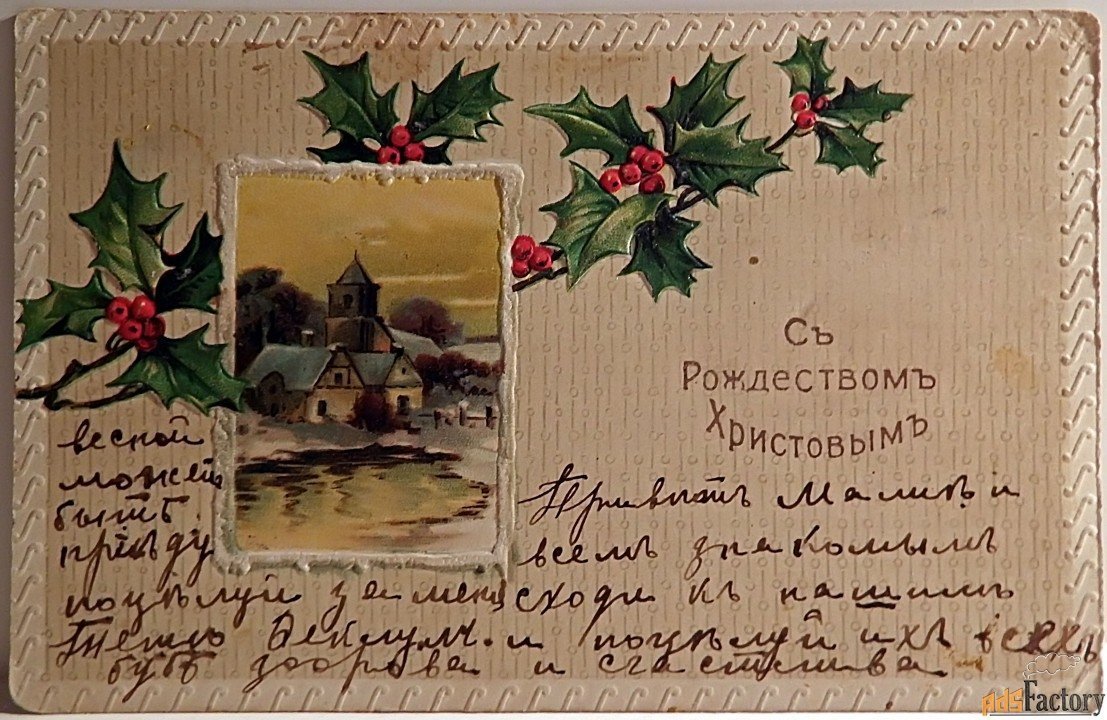 Съ
Рождествомъ
Христовымъ
весной
можетъ
быть
пріѣду
Привѣтъ Маликъ и
всемъ знакомымъ
поцѣлуй за меня сходи къ нашимъ
и поцѣлуй ихъ всехъ
будь здорова и счастлива
AdsFactory